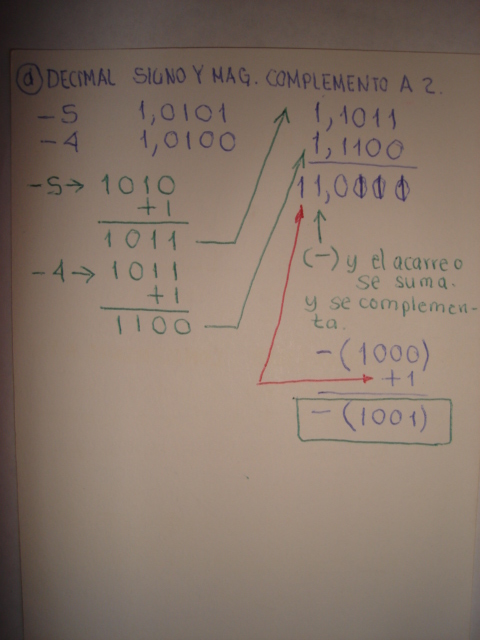 a) DECIMAL SIGNO Y MAG. COMPLEMENTO A 2.
-5 1,0101 1,1011
-4 1,0100 1,1100
11,0111
-5→ 1010
+1
1011
-4→ 1011
+1
1100
(-) y el acarreo
se suma.
y se complemen-
ta.
-(1000)
+1
-(1001)